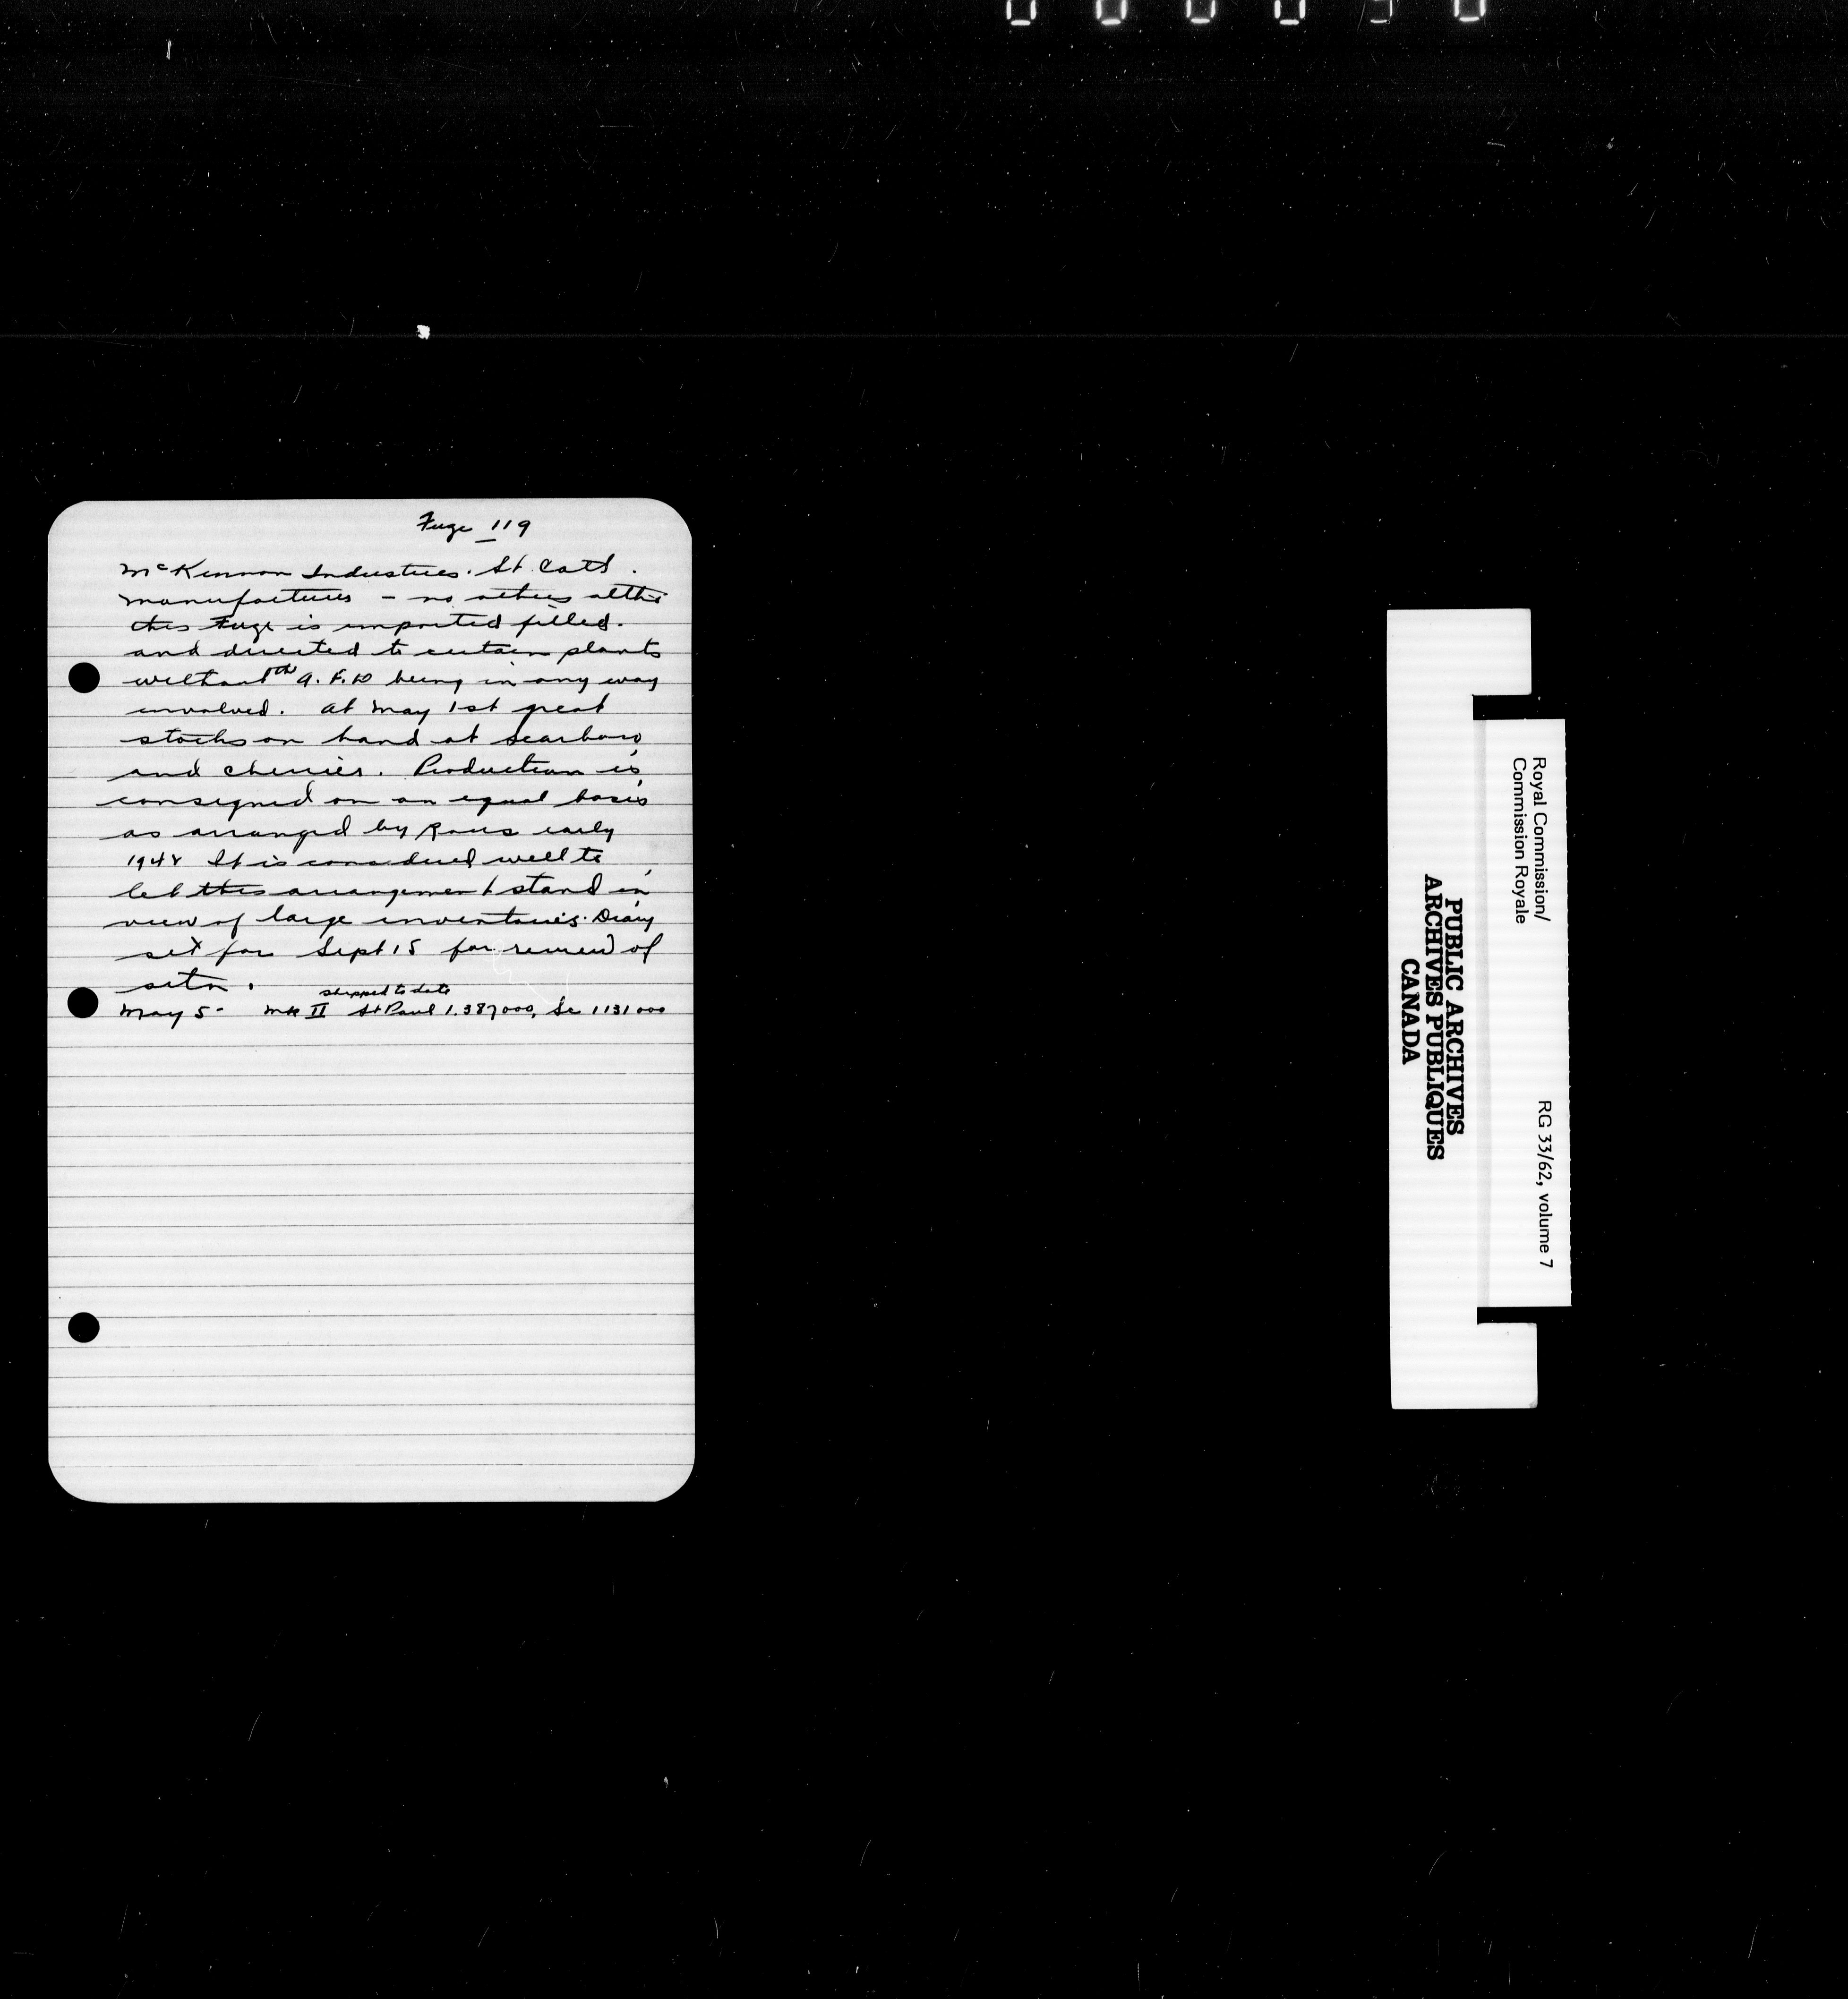 Fuze 119
McKinnon Industries. St. Cath.
manufactures - no others altho
this Fuze is imported filled.
and directed to certain plants
without th being in any way
involved. At May 1st great
stocks on hand at Scarboro
and Cherrier. Production is
consigned on an equal basis
as arranged by early
194 It is considered well to
let this arrangement stand in
view of large inventories. Diary
set for Sept 15 for review of
sitn.
shipped to date
May 5 - Mk II St Paul 1.387000, Sc 1131000
Royal Commission/
Commission Royale
RG 33/62, volume 7
PUBLIC ARCHIVES
ARCHIVES PUBLIQUES
CANADA